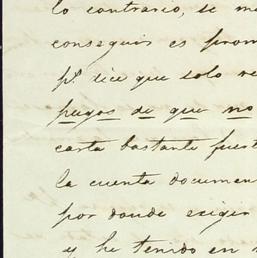 lo contrario, se me
conseguir es prom
pr. dice que solo re
pagos de que no
carta bastante fuert
la cuenta documen
por donde exigen
y he tenido en